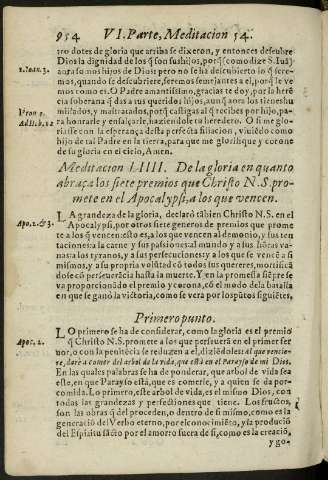 954 VI. Parte, Meditacion 54.
tro dotes de gloria que arriba se dixeron, y entonces descubre
Dios la dignidad de los q̃ son sus hijos, porq̃ (como dize S. Iuã)
1. Ioan. 3. aunq̃ somos hijos de Dios; pero no se ha descubierto lo q̃ sere-
mos, quando se descubriere, seremos semejantes a el, porq̃ le ve
mos como es. O Padre amantissimo, gracias te doy, por la herē
cia soberana q̃ das a tus queridos hijos, aunq̃ aora los tienes hu
millados, y maltratados, porq̃ castigas al q̃ recibes por hijo, pa-
Ad Heb. 12 ra honrarle y ensalçarle, haziendole tu heredero. O si me glo-
riasse con la esperança desta perfecta filiacion, viuiēdo como
hijo de tal Padre en la tierra, para que me glorifique y corone
de su gloria en el cielo, Amen.
Meditacion LIIII. De la gloria en quanto
abraça los siete premios que Christo N. S. pro-
mete en el Apocalypsi, a los que vencen.
Apo. 2. & 3. LA grandeza de la gloria, declarò tābien Christo N. S. en el
Apocalypsi, por otros siete generos de premios que prome
te a los q̃ vencen: esto es, a los que vencen al demonio, y sus ten
taciones: a la carne y sus passiones: al mundo y a sus
nas: a los tyranos, y a sus persecuciones: y a los que se vencē a si
mismos, y a su propria volūtad cō todos sus quereres, mortificā
dose cō perseuerācia hasta la muerte. Y en la promessa siēpre se
va proporcionādo el premio y corona, cō el modo de la batalla
en que se ganò la victoria, como se vera por los pūtos siguiētes,
Primero punto.
Apoc. 2. LO primero se ha de considerar, como la gloria es el premio
q̃ Christo N. S. promete a los que perseuerā en el primer fer
uor, o con la penitēcia se reduzen a el, diziēdoles: al que vencie-
re, darè a comer del arbol de la vida, que està en el Parayso de mi Dios.
En las quales palabras se ha de ponderar, que arbol de vida sea
este, en que Parayso està, que es comerle, y a quien se da por co-
mida. Lo primero, este arbol de vida, es el mismo Dios, con
todas las grandezas y perfectiones que tiene. Los fructos,
son las obras q̃ del proceden, o dentro de si mismo, como es la
generaciō del Verbo eterno, por el conocimiēto, y la produciō
del Espiritu sācto por el amor: o fuera de si, como es la creaciō,
y go-